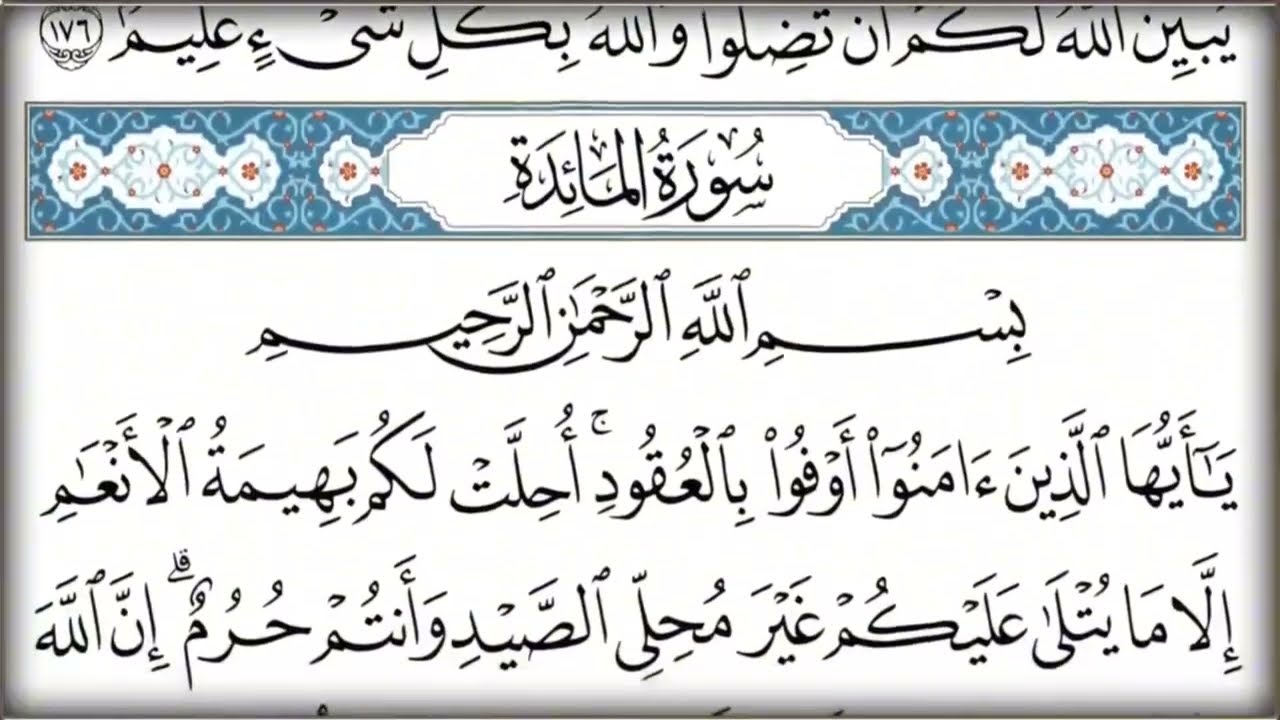 يُبَيِّنُ ٱللَّهُ لَكُمْ أَن تَضِلُّوا۟ وَٱللَّهُ بِكُلِّ شَىْءٍ عَلِيمٌ ١٧٦
سُورَةُ المَائِدَةِ
بِسْمِ ٱللَّهِ ٱلرَّحْمَٰنِ ٱلرَّحِيمِ
يَٰٓأَيُّهَا ٱلَّذِينَ ءَامَنُوٓا۟ أَوْفُوا۟ بِٱلْعُقُودِ ۚ أُحِلَّتْ لَكُم بَهِيمَةُ ٱلْأَنْعَٰمِ
إِلَّا مَا يُتْلَىٰ عَلَيْكُمْ غَيْرَ مُحِلِّى ٱلصَّيْدِ وَأَنتُمْ حُرُمٌ ۗ إِنَّ ٱللَّهَ